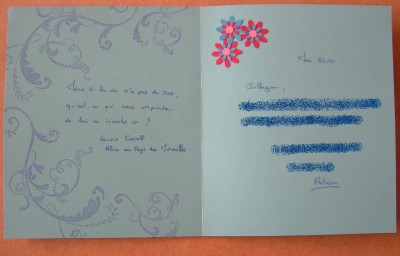 Même si la vie n'a pas de sens,
qu'est-ce qui nous empêche
de lui en inventer un ?
Lewis Carroll
Alice au Pays des Merveilles
Mai 2010
Pulssin